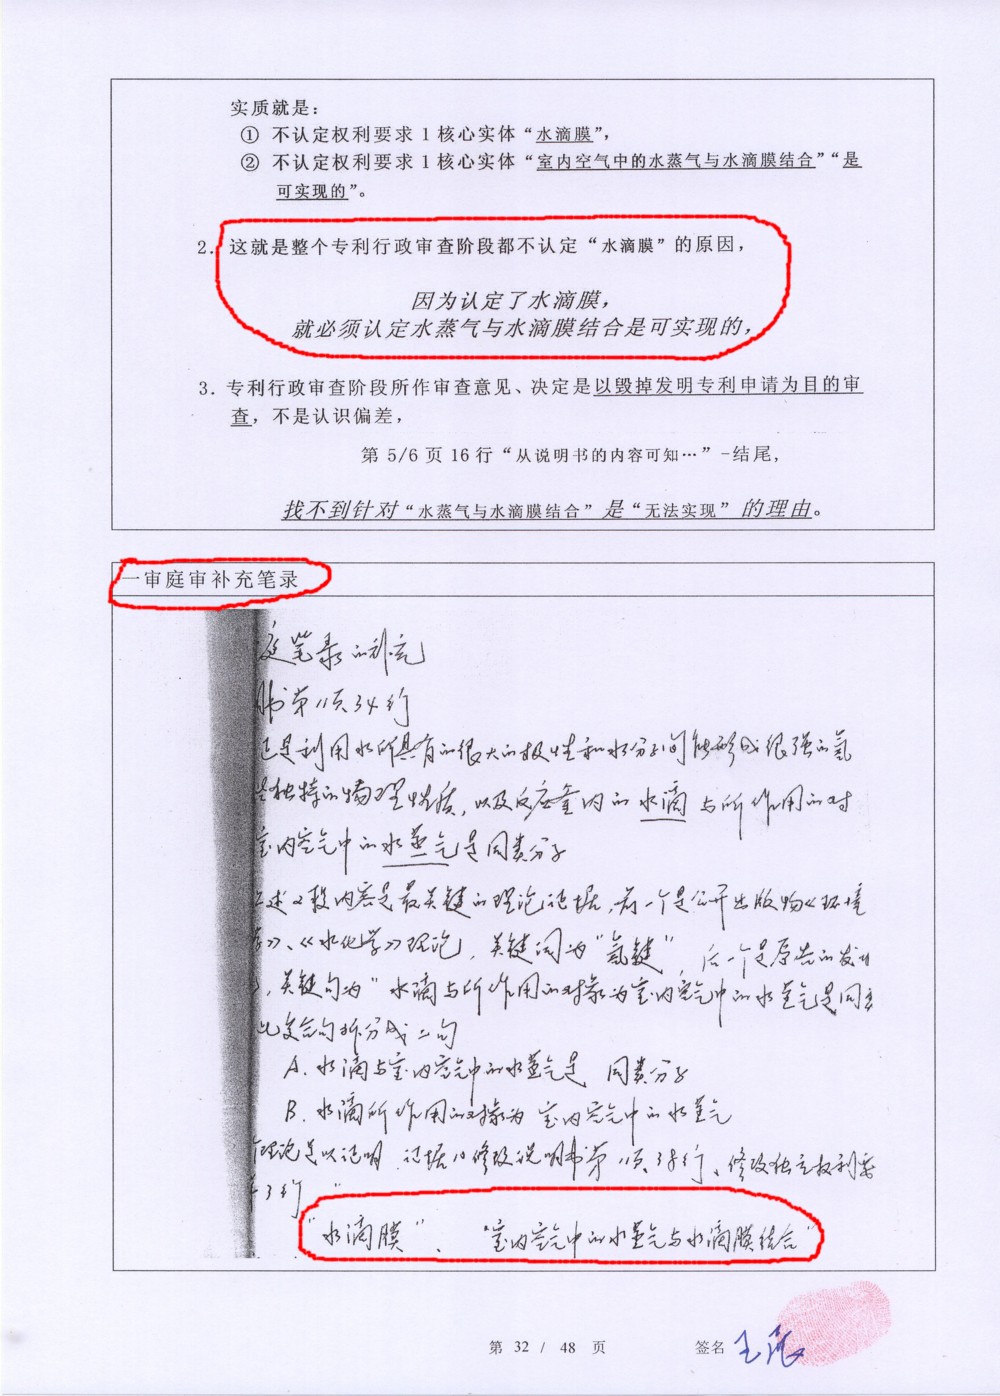 实质就是：
① 不认定权利要求 1 核心实体“水滴膜”，
② 不认定权利要求 1 核心实体“室内空气中的水蒸气与水滴膜结合”“是
可实现的”。
2. 这就是整个专利行政审查阶段都不认定“水滴膜”的原因，
因为认定了水滴膜，
就必须认定水蒸气与水滴膜结合是可实现的，
3. 专利行政审查阶段所作审查意见、决定是以毁掉发明专利申请为目的审
查，不是认识偏差，
第 5/6 页 16 行“从说明书的内容可知…”-结尾，
找不到针对“水蒸气与水滴膜结合”是“无法实现”的理由。
一审庭审补充笔录
庭笔录的补充
书第11页34行
是利用水所具有的很大的极性和水分子间能形成很强的氢
独特的物理性质，以及反应室内的水滴与所作用的对
室内空气中的水蒸气是同类分子
上述2段内容是最关键的理论证据，前一个是公开出版物《环境
学》、《水化学》理论，关键词为“氢键”，后一个是原告的发
，关键句为“水滴与所作用的对象为室内空气中的水蒸气是同
此复合句拆分成二句
A. 水滴与室内空气中的水蒸气是 同类分子
B. 水滴所作用的对象为 室内空气中的水蒸气
理论足以证明 证据10修改说明书第11页38行、修改独立权利要
3行 “
“水滴膜”、“室内空气中的水蒸气与水滴膜结合”
第 32 / 48 页
签名